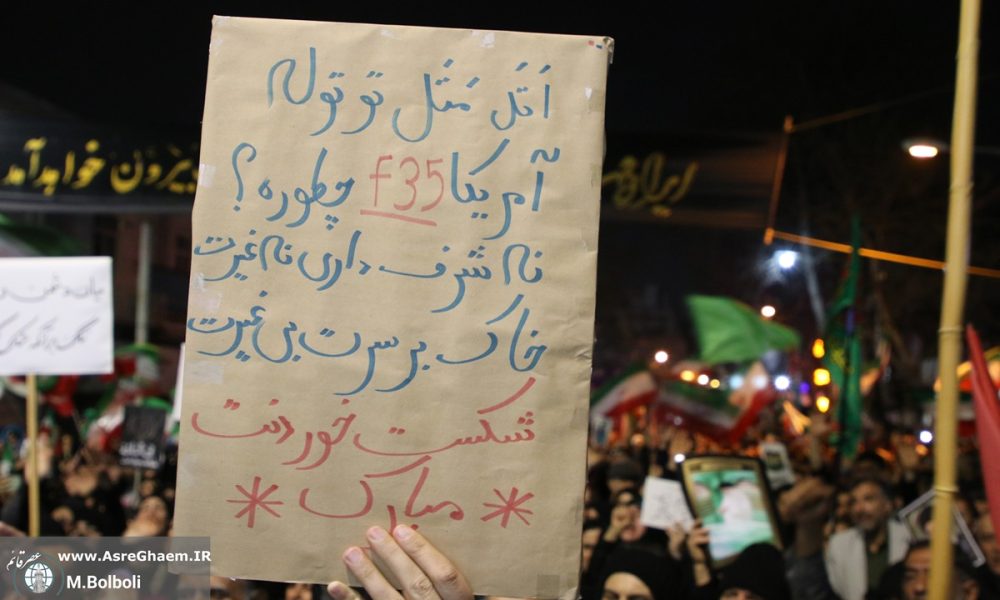 اَتَل مَتَل تو توله
آمریکا F35 چطوره؟
نه شرف داری نه غیرت
خاک بر سرت بی غیرت
شکست خوردنت
* مبارک *
بیرون خواهد آمد
ایران
www.AsreGhaem.IR
M.Bolboli
عصر قائم